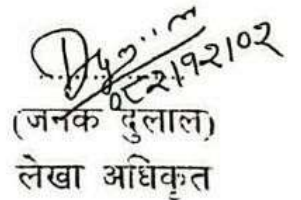 ०८२।१२।०२
(जनक दुलाल)
लेखा अधिकृत